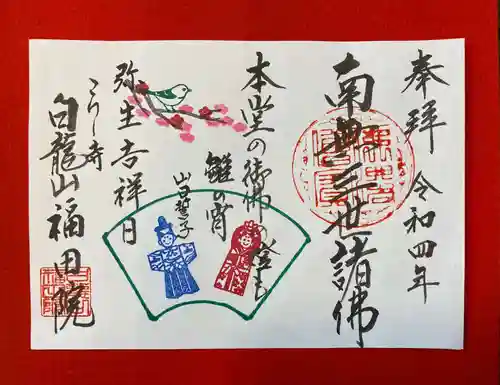 奉拝 令和四年
南無三世諸佛
本堂の御佛の燈も
雛の宵
山口誓子
弥生吉祥日
寺
白龍山福田院